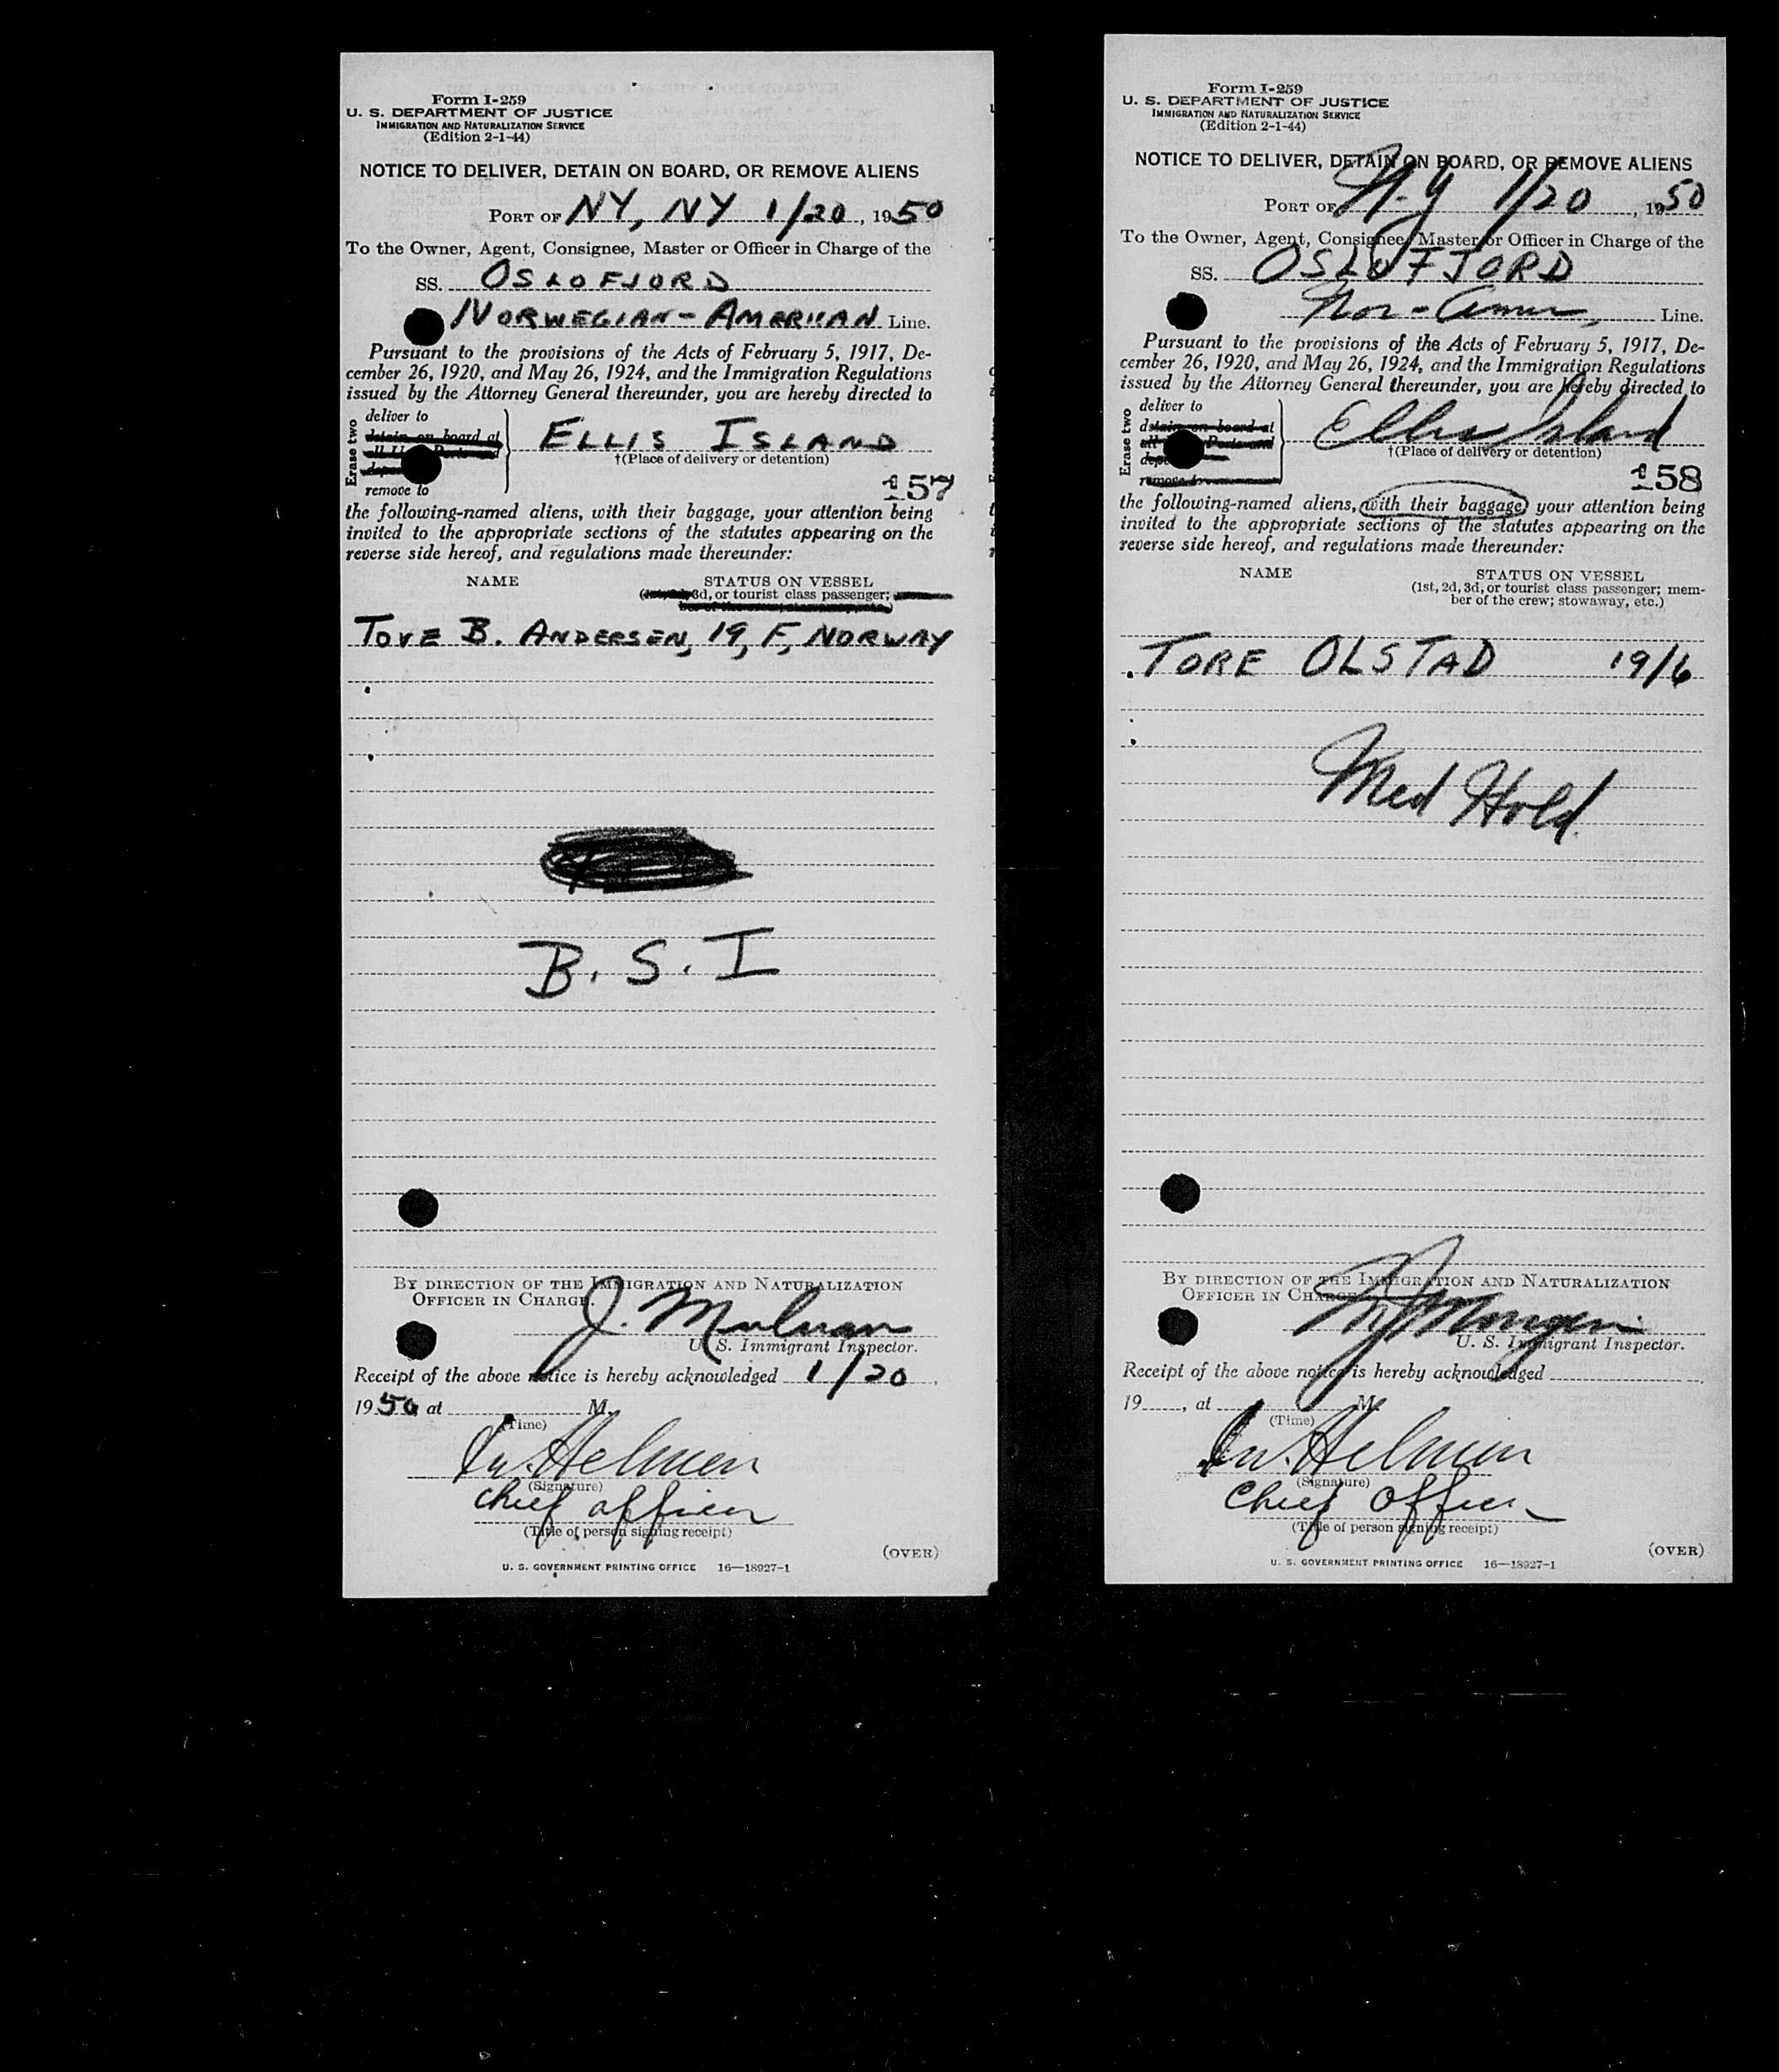 Form I-259
U. S. DEPARTMENT OF JUSTICE
IMMIGRATION AND NATURALIZATION SERVICE
(Edition 2-1-44)
NOTICE TO DELIVER, DETAIN ON BOARD, OR REMOVE ALIENS
PORT OF NY, NY 1/20, 1950
To the Owner, Agent, Consignee, Master or Officer in Charge of the
SS. OSLOFJORD
NORWEGIAN-AMERICAN Line.
Pursuant to the provisions of the Acts of February 5, 1917, De-
cember 26, 1920, and May 26, 1924, and the Immigration Regulations
issued by the Attorney General thereunder, you are hereby directed to
Erase two
deliver to
detain on board at
remove to
ELLIS ISLAND
†(Place of delivery or detention)
157
the following-named aliens, with their baggage, your attention being
invited to the appropriate sections of the statutes appearing on the
reverse side hereof, and regulations made thereunder:
NAME STATUS ON VESSEL
3d, or tourist class passenger;
TOVE B. ANDERSEN, 19, F, NORWAY
B. S. I
BY DIRECTION OF THE IMMIGRATION AND NATURALIZATION
OFFICER IN CHARGE.
J.
U. S. Immigrant Inspector.
Receipt of the above notice is hereby acknowledged 1/20,
1950 at M.
(Time)
(Signature)
Chief officer
(Title of person signing receipt)
(OVER)
U. S. GOVERNMENT PRINTING OFFICE 16—18927-1
Form I-259
U. S. DEPARTMENT OF JUSTICE
IMMIGRATION AND NATURALIZATION SERVICE
(Edition 2-1-44)
NOTICE TO DELIVER, DETAIN ON BOARD, OR REMOVE ALIENS
PORT OF N.Y 1/20, 1950
To the Owner, Agent, Consignee, Master or Officer in Charge of the
SS. OSLOFJORD
Nor-Amer, Line.
Pursuant to the provisions of the Acts of February 5, 1917, De-
cember 26, 1920, and May 26, 1924, and the Immigration Regulations
issued by the Attorney General thereunder, you are hereby directed to
Erase two
deliver to
detain on board at
remove to
Ellis Island
†(Place of delivery or detention)
158
the following-named aliens, with their baggage, your attention being
invited to the appropriate sections of the statutes appearing on the
reverse side hereof, and regulations made thereunder:
NAME STATUS ON VESSEL
(1st, 2d, 3d, or tourist class passenger; mem-
ber of the crew; stowaway, etc.)
TORE OLSTAD 19/6
Med Hold
BY DIRECTION OF THE IMMIGRATION AND NATURALIZATION
OFFICER IN CHARGE.
U. S. Immigrant Inspector.
Receipt of the above notice is hereby acknowledged
19, at M.
(Time)
(Signature)
Chief Officer
(Title of person signing receipt)
(OVER)
U. S. GOVERNMENT PRINTING OFFICE 16—18927-1